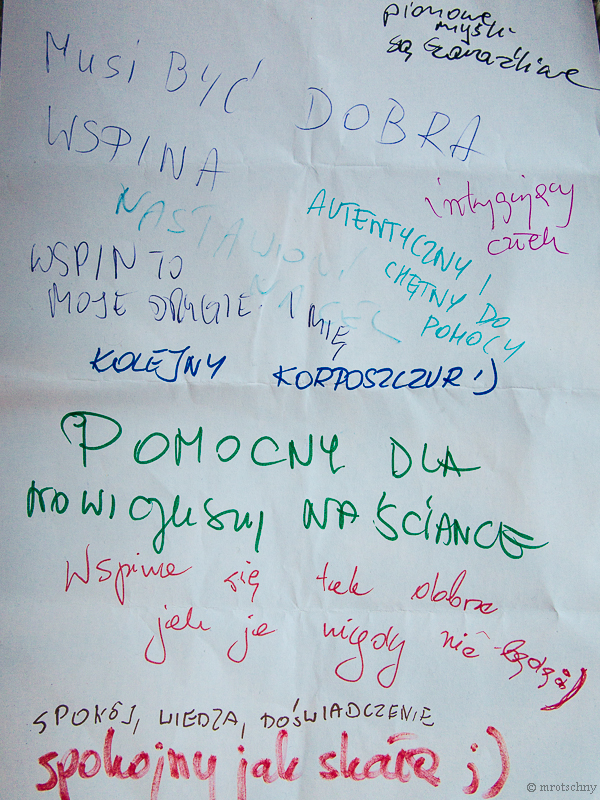 pionowe
myśli
są zaraźliwe
MUSI BYĆ DOBRA
WSPINA
intrygujący
człek
NASTAWIONY
NA CEL
AUTENTYCZNY I
CHĘTNY DO
POMOCY
WSPIN TO
MOJE DRUGIE IMIĘ
KOLEJNY KORPOSZCZUR :)
POMOCNY DLA
NOWICJUSZY NA ŚCIANCE
Wspina się tak dobrze
jak ja nigdy nie będę :)
SPOKÓJ, WIEDZA, DOŚWIADCZENIE
spokojny jak skała ;)
© mrotschny